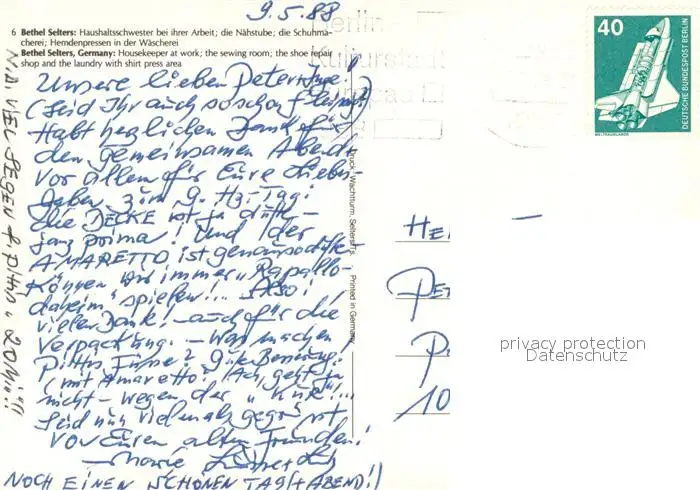 9.5.88
6 Bethel Selters: Haushaltsschwester bei ihrer Arbeit; die Nähstube; die Schuhma-
cherei; Hemdenpressen in der Wäscherei
Bethel Selters, Germany: Housekeeper at work; the sewing room; the shoe repair
shop and the laundry with shirt press area
Unsere lieben Peterchge!
(Seid Ihr auch so schon fleißig?)
Habt herzlichen Dank für
den gemeinsamen Abend,
vor allem für Eure lieben
Gaben zum 9. Hz. Tag:
die DECKE ist ja dufte –
ganz prima! Und der
AMARETTO ist genauso dufte
Können wir immer „Rapallo-
daheim" spielen!... Also!
vielen Dank! – auch für die
Verpackung. – Was machen
Pittis Füsse? Gute Besserung!
(mit Amaretto? Ach, geht ja
nicht – wegen der „Kur"!...
Seid nun vielmals gegrüsst
von Euren alten Freunden!
– Marie
NOCH EINEN SCHÖNEN TAG (+ ABEND!)
N.B. VIEL SEGEN f. PITTIS „ZOMI"!!
Druck: Wachtturm, Selters/Ts.
Printed in Germany
Berlin
Kulturstadt
Europas
40
DEUTSCHE BUNDESPOST BERLIN
WELTRAUMLABOR
HE
PET
P
10
privacy protection
Datenschutz